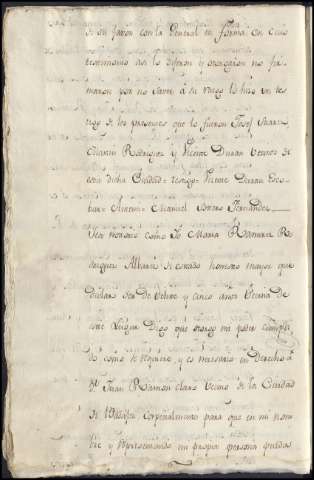 de su favor con la General en forma en cuio
testimonio asi lo dijeron y otorgaron no fir
maron por no saver a su ruego lo hizo un tes
tigo de los presentes que lo fueron Josef
Martin Rodriguez y Vicente Duran vecinos de
esta dicha Ciudad = testigo = Vicente Duran
Antonio Manuel Fernandez
Sea notorio como Yo Maria Ramona R
odriguez Albarez de estado honesto mayor que
declaro ser de veinte y cinco años Vecina de
este Lugar Digo que otorgo mi poder cumpli
do como se requiere y es necesario en Derecho a
Dn Juan Ramon Claro Vecino de la Ciudad
de especialmente para que en mi nom
bre y representando mi propia persona pueda